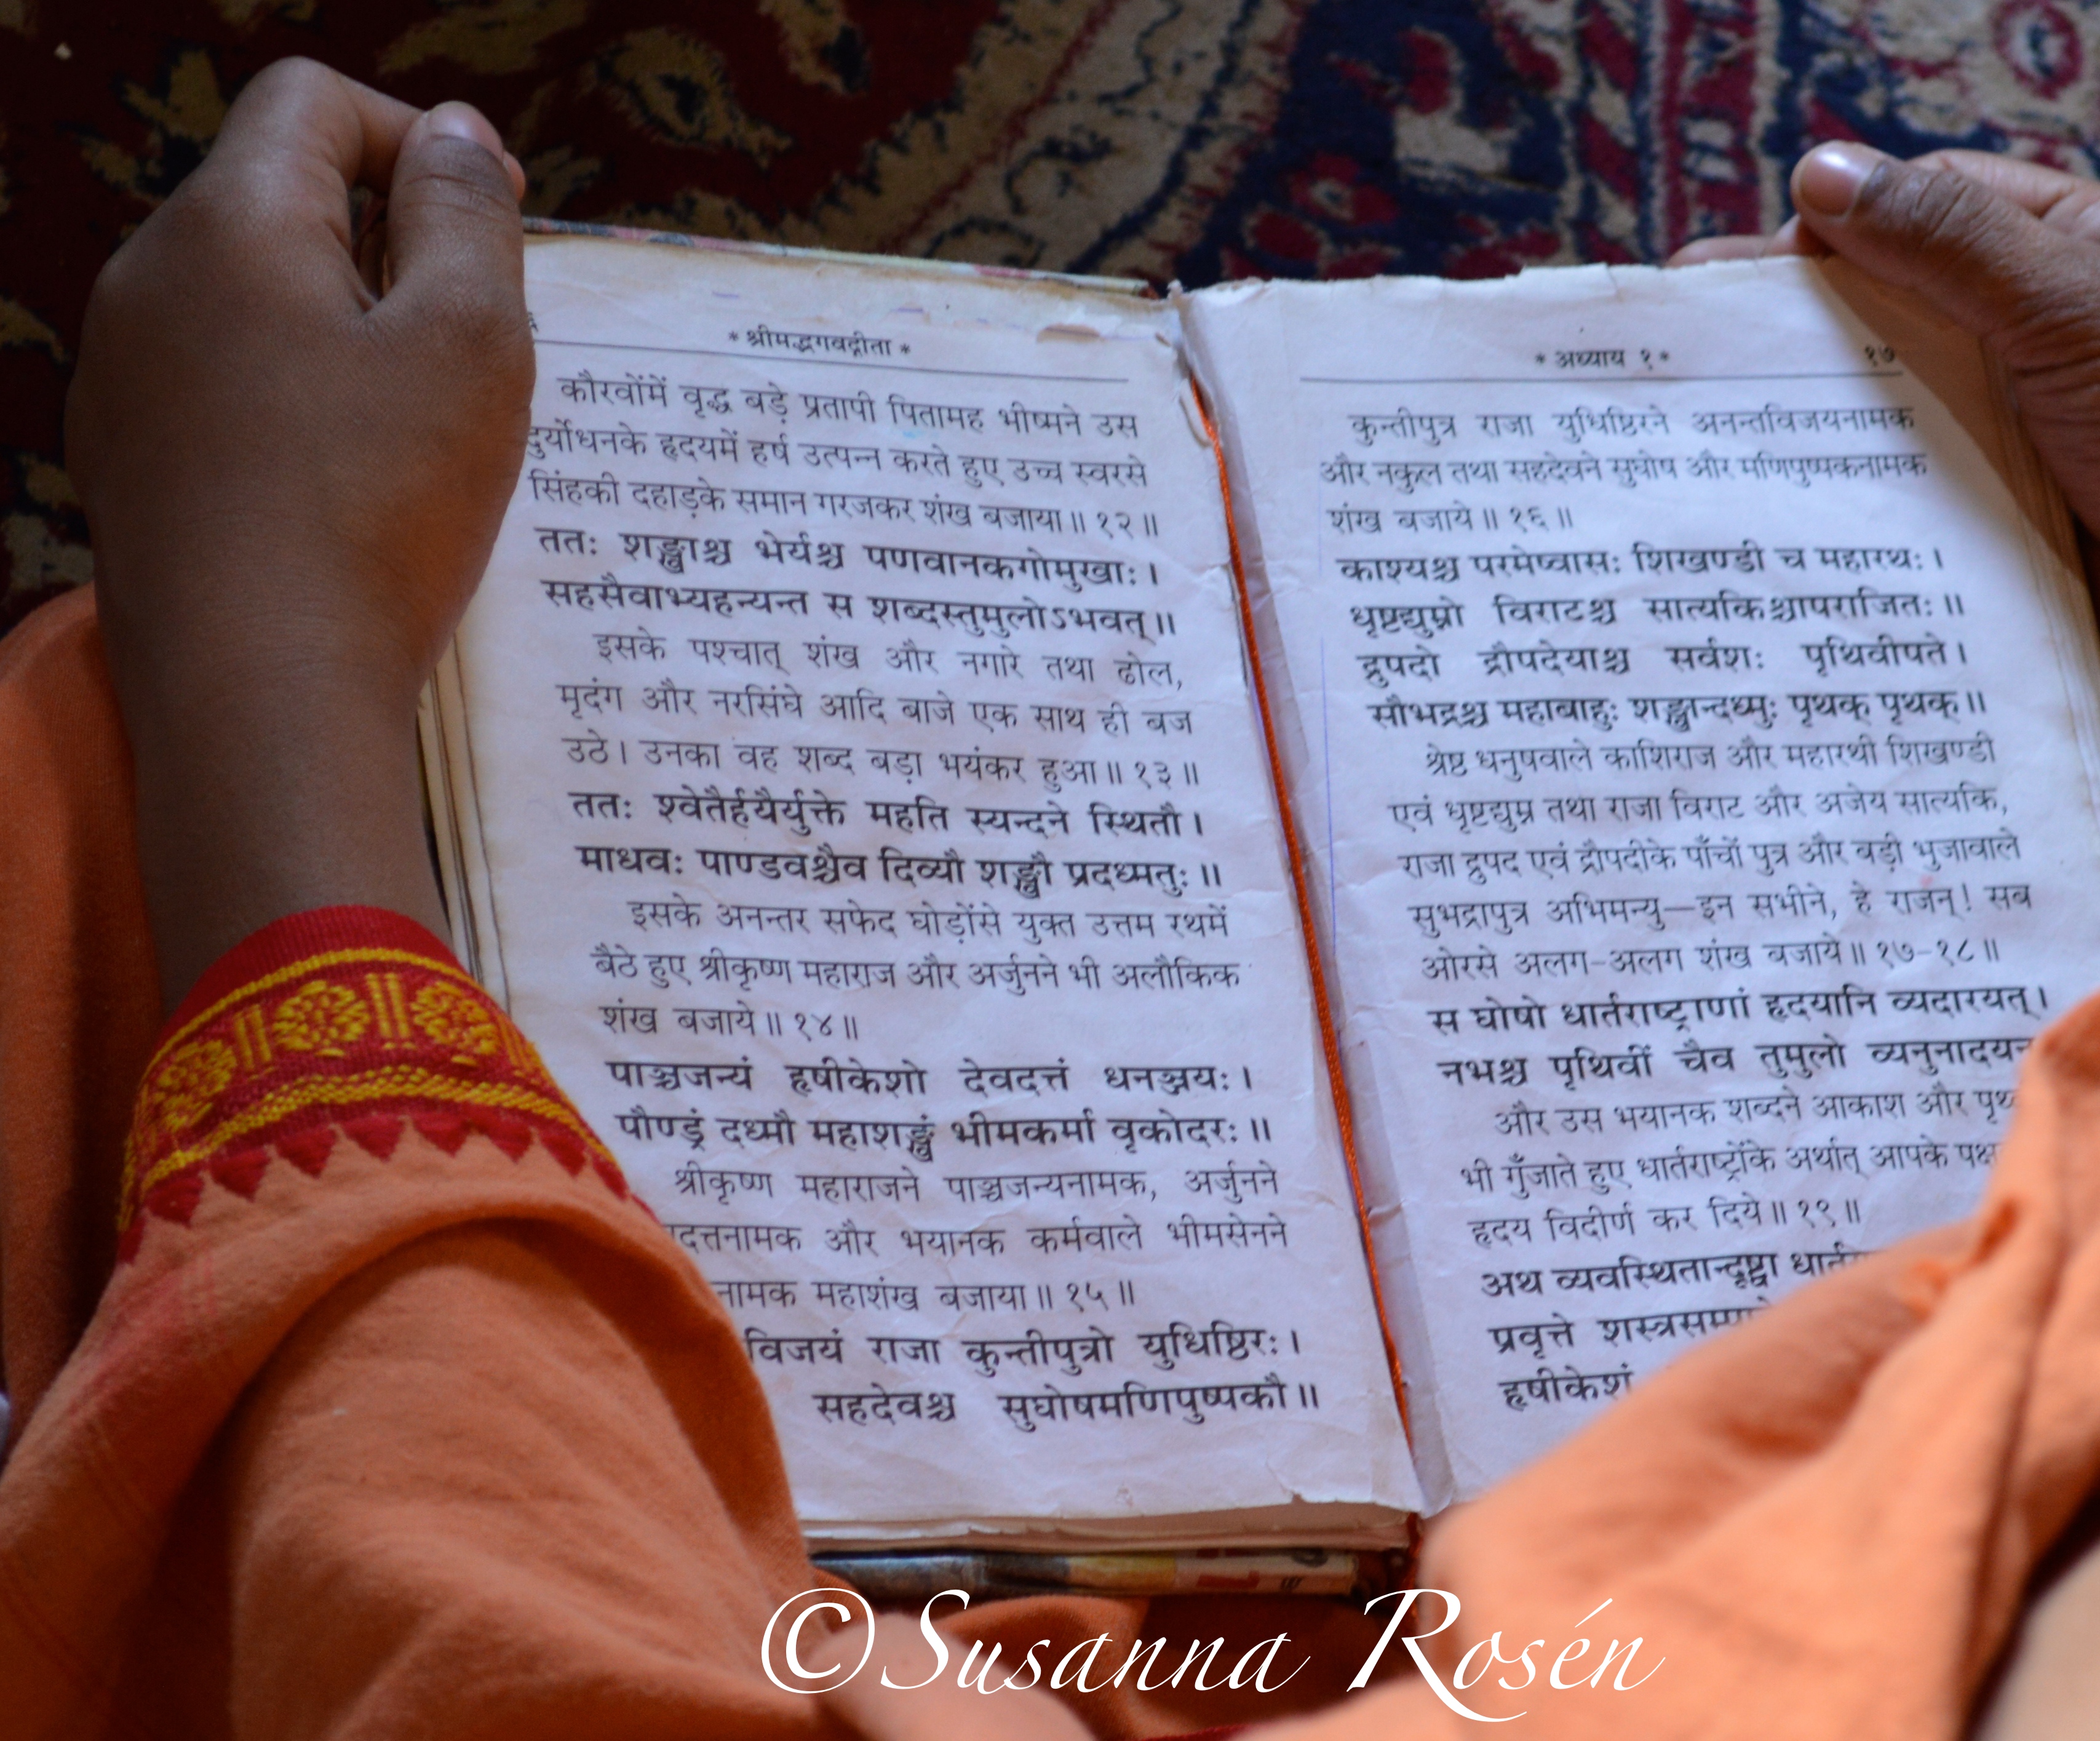 * श्रीमद्भगवद्गीता *
कौरवोंमें वृद्ध बड़े प्रतापी पितामह भीष्मने उस
दुर्योधनके हृदयमें हर्ष उत्पन्न करते हुए उच्च स्वरसे
सिंहकी दहाड़के समान गरजकर शंख बजाया॥ १२॥
ततः शङ्खाश्च भेर्यश्च पणवानकगोमुखाः।
सहसैवाभ्यहन्यन्त स शब्दस्तुमुलोऽभवत्॥
इसके पश्चात् शंख और नगारे तथा ढोल,
मृदंग और नरसिंघे आदि बाजे एक साथ ही बज
उठे। उनका वह शब्द बड़ा भयंकर हुआ॥ १३॥
ततः श्वेतैर्हयैर्युक्ते महति स्यन्दने स्थितौ।
माधवः पाण्डवश्चैव दिव्यौ शङ्खौ प्रदध्मतुः॥
इसके अनन्तर सफेद घोड़ोंसे युक्त उत्तम रथमें
बैठे हुए श्रीकृष्ण महाराज और अर्जुनने भी अलौकिक
शंख बजाये॥ १४॥
पाञ्चजन्यं हृषीकेशो देवदत्तं धनञ्जयः।
पौण्ड्रं दध्मौ महाशङ्खं भीमकर्मा वृकोदरः॥
श्रीकृष्ण महाराजने पाञ्चजन्यनामक, अर्जुनने
दत्तनामक और भयानक कर्मवाले भीमसेनने
नामक महाशंख बजाया॥ १५॥
विजयं राजा कुन्तीपुत्रो युधिष्ठिरः।
सहदेवश्च सुघोषमणिपुष्पकौ॥
* अध्याय १ * १७
कुन्तीपुत्र राजा युधिष्ठिरने अनन्तविजयनामक
और नकुल तथा सहदेवने सुघोष और मणिपुष्पकनामक
शंख बजाये॥ १६॥
काश्यश्च परमेष्वासः शिखण्डी च महारथः।
धृष्टद्युम्नो विराटश्च सात्यकिश्चापराजितः॥
द्रुपदो द्रौपदेयाश्च सर्वशः पृथिवीपते।
सौभद्रश्च महाबाहुः शङ्खान्दध्मुः पृथक् पृथक्॥
श्रेष्ठ धनुषवाले काशिराज और महारथी शिखण्डी
एवं धृष्टद्युम्न तथा राजा विराट और अजेय सात्यकि,
राजा द्रुपद एवं द्रौपदीके पाँचों पुत्र और बड़ी भुजावाले
सुभद्रापुत्र अभिमन्यु—इन सभीने, हे राजन्! सब
ओरसे अलग-अलग शंख बजाये॥ १७-१८॥
स घोषो धार्तराष्ट्राणां हृदयानि व्यदारयत्।
नभश्च पृथिवीं चैव तुमुलो व्यनुनादयन्
और उस भयानक शब्दने आकाश और पृथ
भी गुँजाते हुए धार्तराष्ट्रोंके अर्थात् आपके पक्ष
हृदय विदीर्ण कर दिये॥ १९॥
अथ व्यवस्थितान्दृष्ट्वा
प्रवृत्ते
हृषीकेशं
©Susanna Rosén